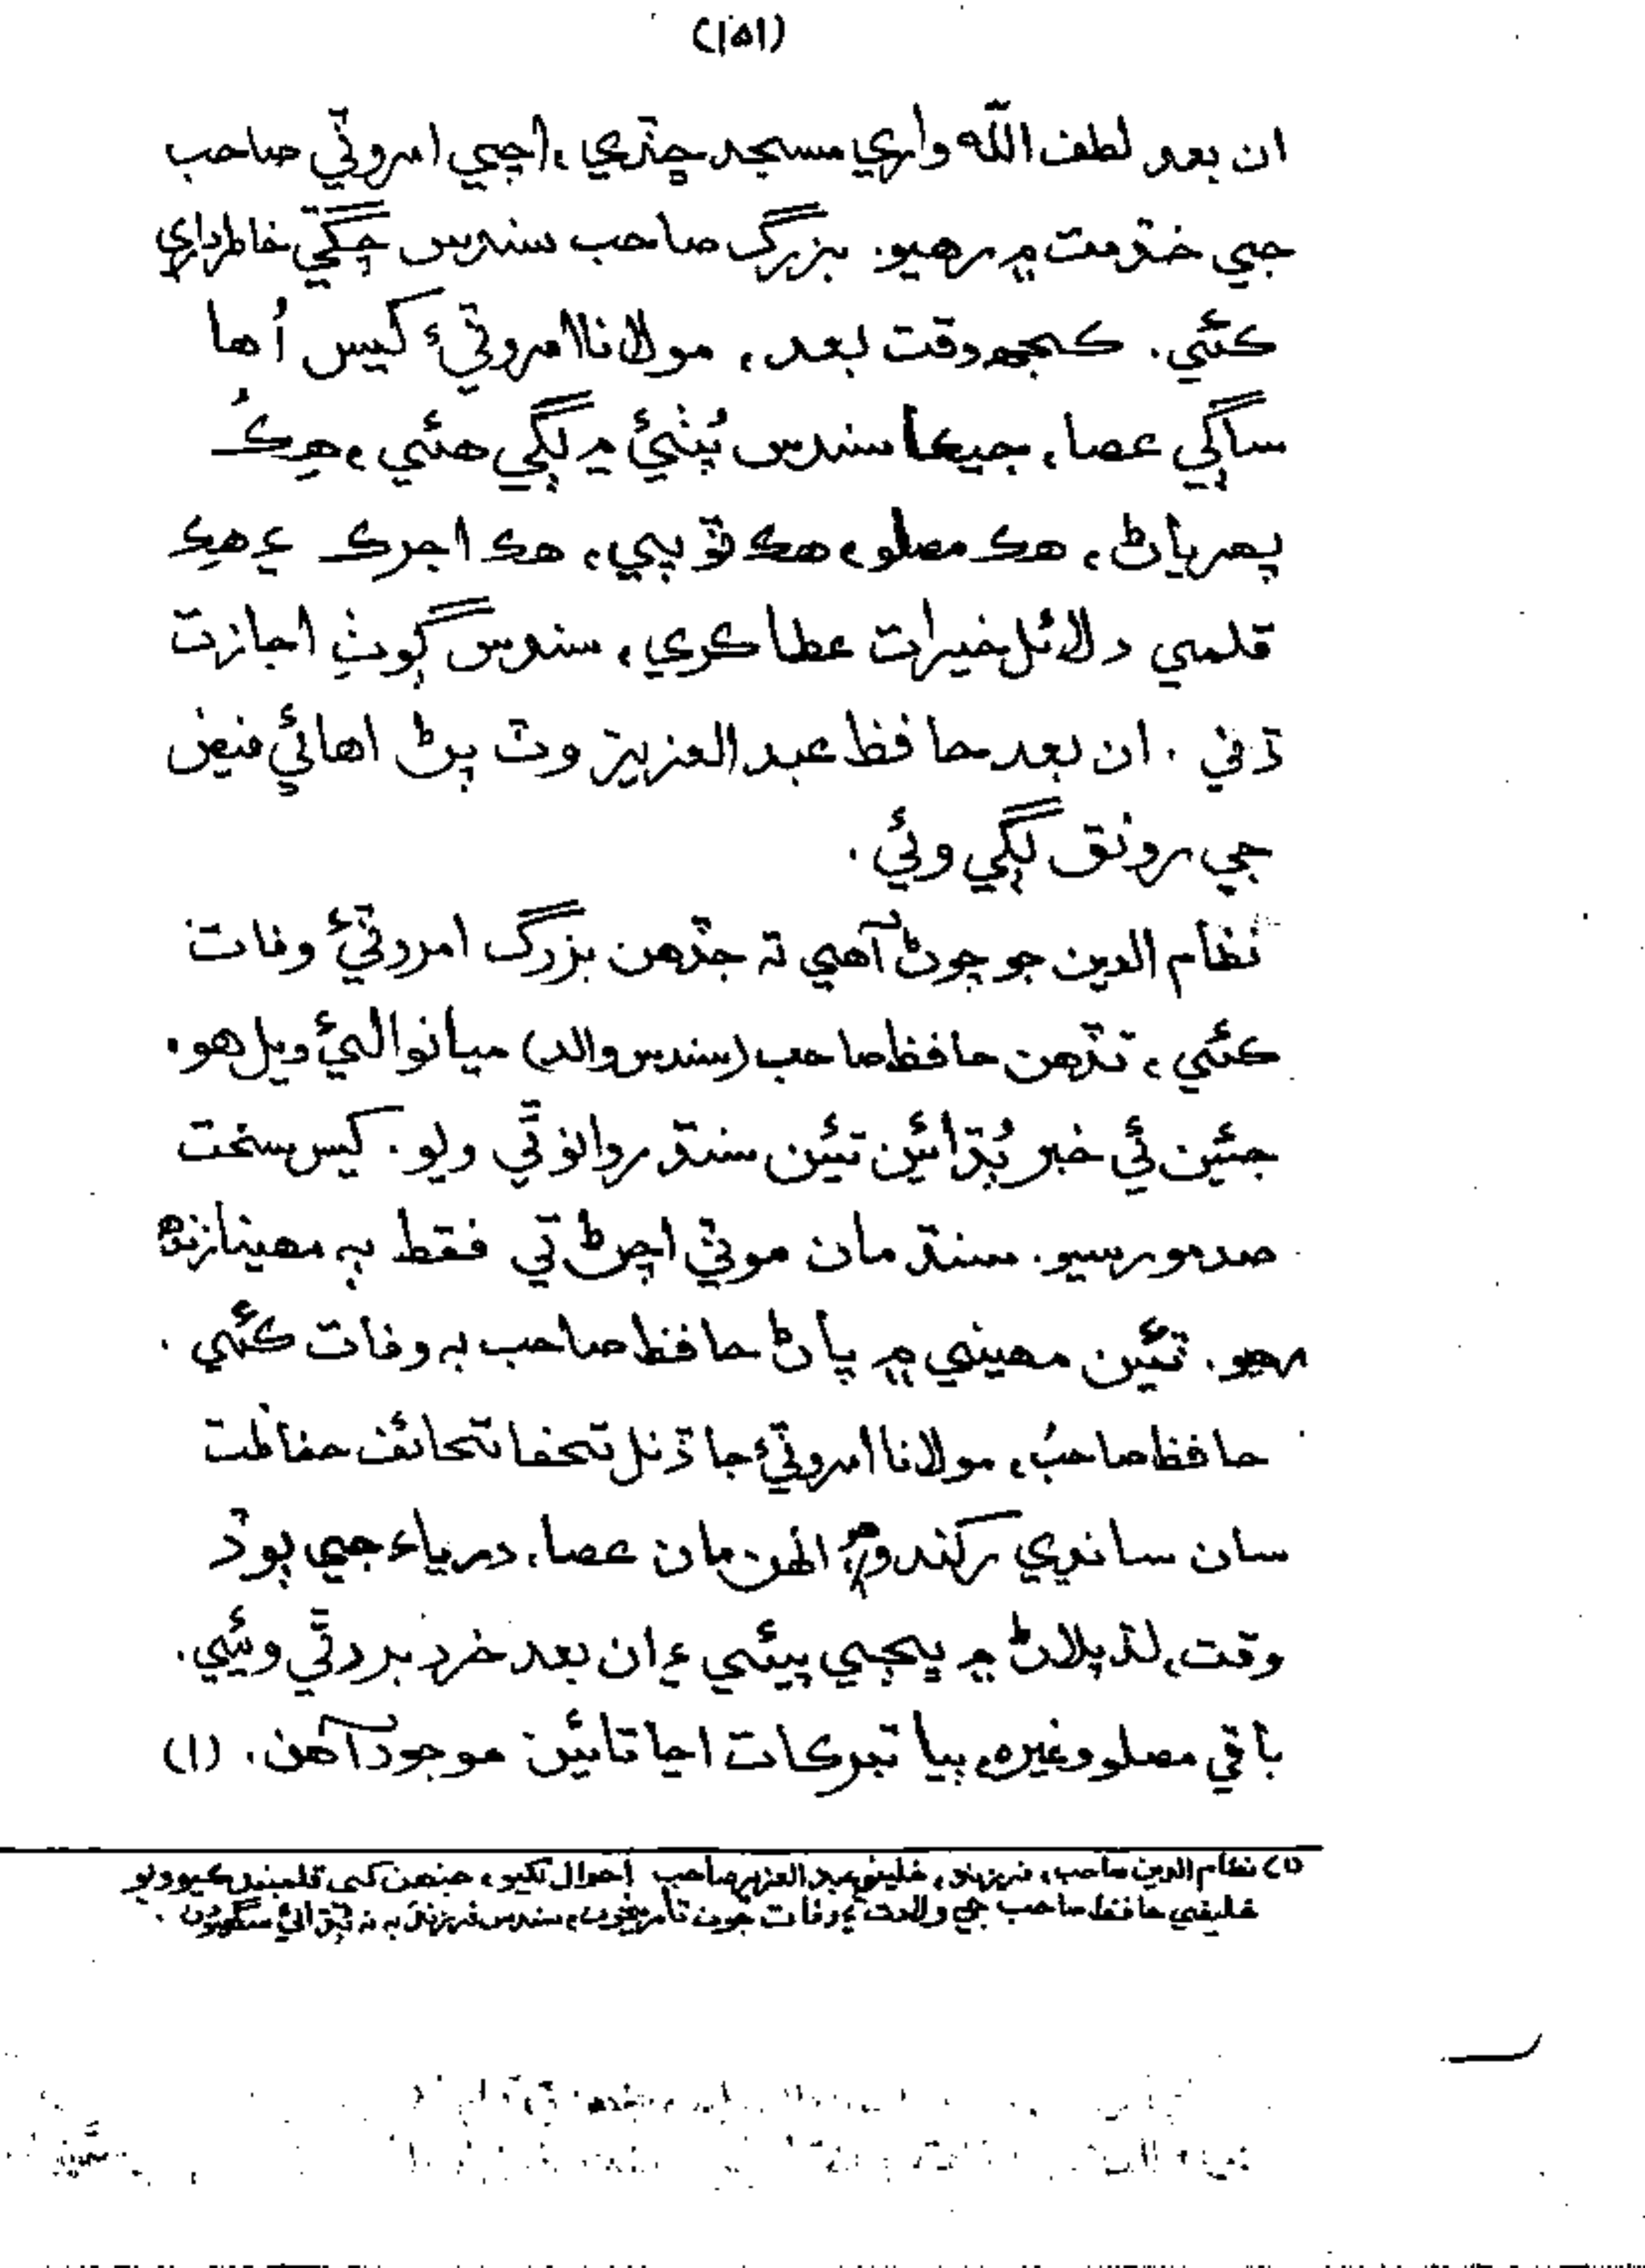 (١٥١)
ان بعد لطف الله واري مسجد ڇڏي، اچي امروٽي صاحب
جي خدمت ۾ رهيو. بزرگ صاحب سندس چڱي خاطرداري
ڪئي. ڪجهه وقت بعد، مولانا امروٽيءَ کيس اُها
ساڳي عصا، جيڪا سندس پُٺيءَ ۾ لڳي هئي، هِڪُ
پهرياڻ، هڪ مصلو، هڪ ٽوپي، هڪ اجرڪ ۽ هڪ
قلمي دلائل خيرات عطا ڪري، سندس ڳوٺ اجازت
ڏني. ان بعد حافظ عبدالعزيز وٽ پڻ اهائي فيض
جي رونق لڳي وئي.
نظام الدين جو چوڻ آهي ته جڏهن بزرگ امروٽيءَ وفات
ڪئي، تڏهن حافظ صاحب (سندس والد) ميانواليءَ ويل هو.
جئين ئي خبر ٻُڌائين تئين سنڌ روانو ٿي ويو. کيس سخت
صدمو رسيو. سنڌ مان موٽي اچڻ تي فقط ٻه مهينا زنده
رهيو. ٽئين مهيني ۾ پاڻ حافظ صاحب به وفات ڪئي.
حافظ صاحبُ، مولانا امروٽيءَ جا ڏنل تحفا تحائف حفاظت
سان سانڍي رکندو هو. انهن مان عصا، درياء جي ٻوڏ
وقت، لڏپلاڻ ۾ ڀڄي پيئي ۽ ان بعد خرد برد ٿي ويئي.
باقي مصلو وغيره، ٻيا تبرڪات اڃا تائين موجود آهن. (١)
(١) نظام الدين صاحب، فرزند، خليفو عبدالعزيز صاحب احوال لکيو، جنهن کي قلمبند ڪيو ويو
خليفي حافظ صاحب جي ولادت ۽ وفات جون تاريخون، سندس فرزند به نه ٻڌائي سگهيون.